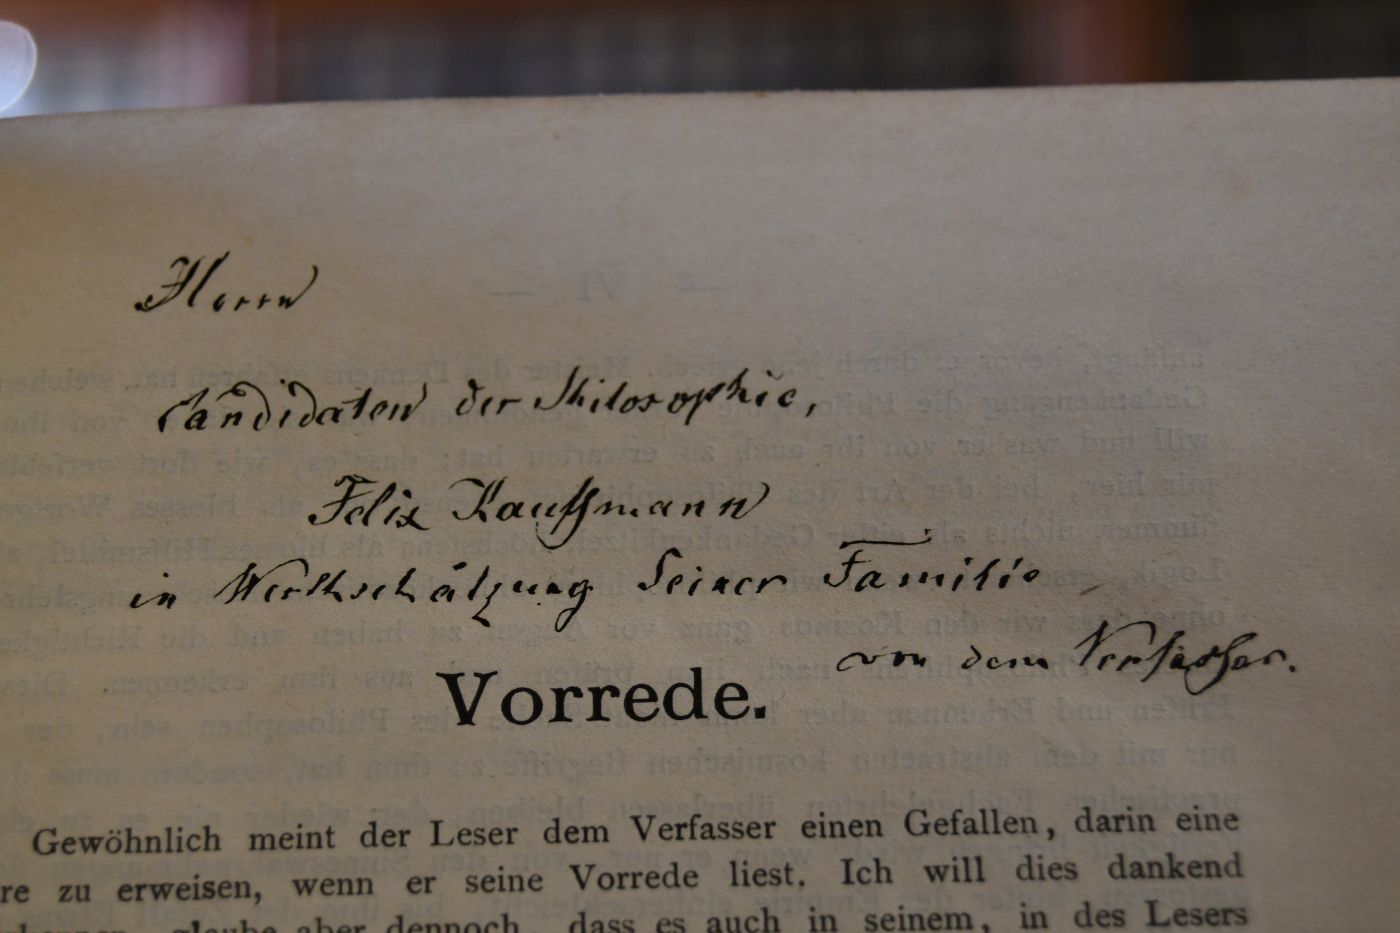 Herrn
Candidaten der Philosophie,
Felix Kauffmann
in Werthschätzung Seiner Familie
von dem Verfasser.
Vorrede.
Gewöhnlich meint der Leser dem Verfasser einen Gefallen, darin eine
re zu erweisen, wenn er seine Vorrede liest. Ich will dies dankend
glaube aber dennoch, dass es auch in seinem, in des Lesers